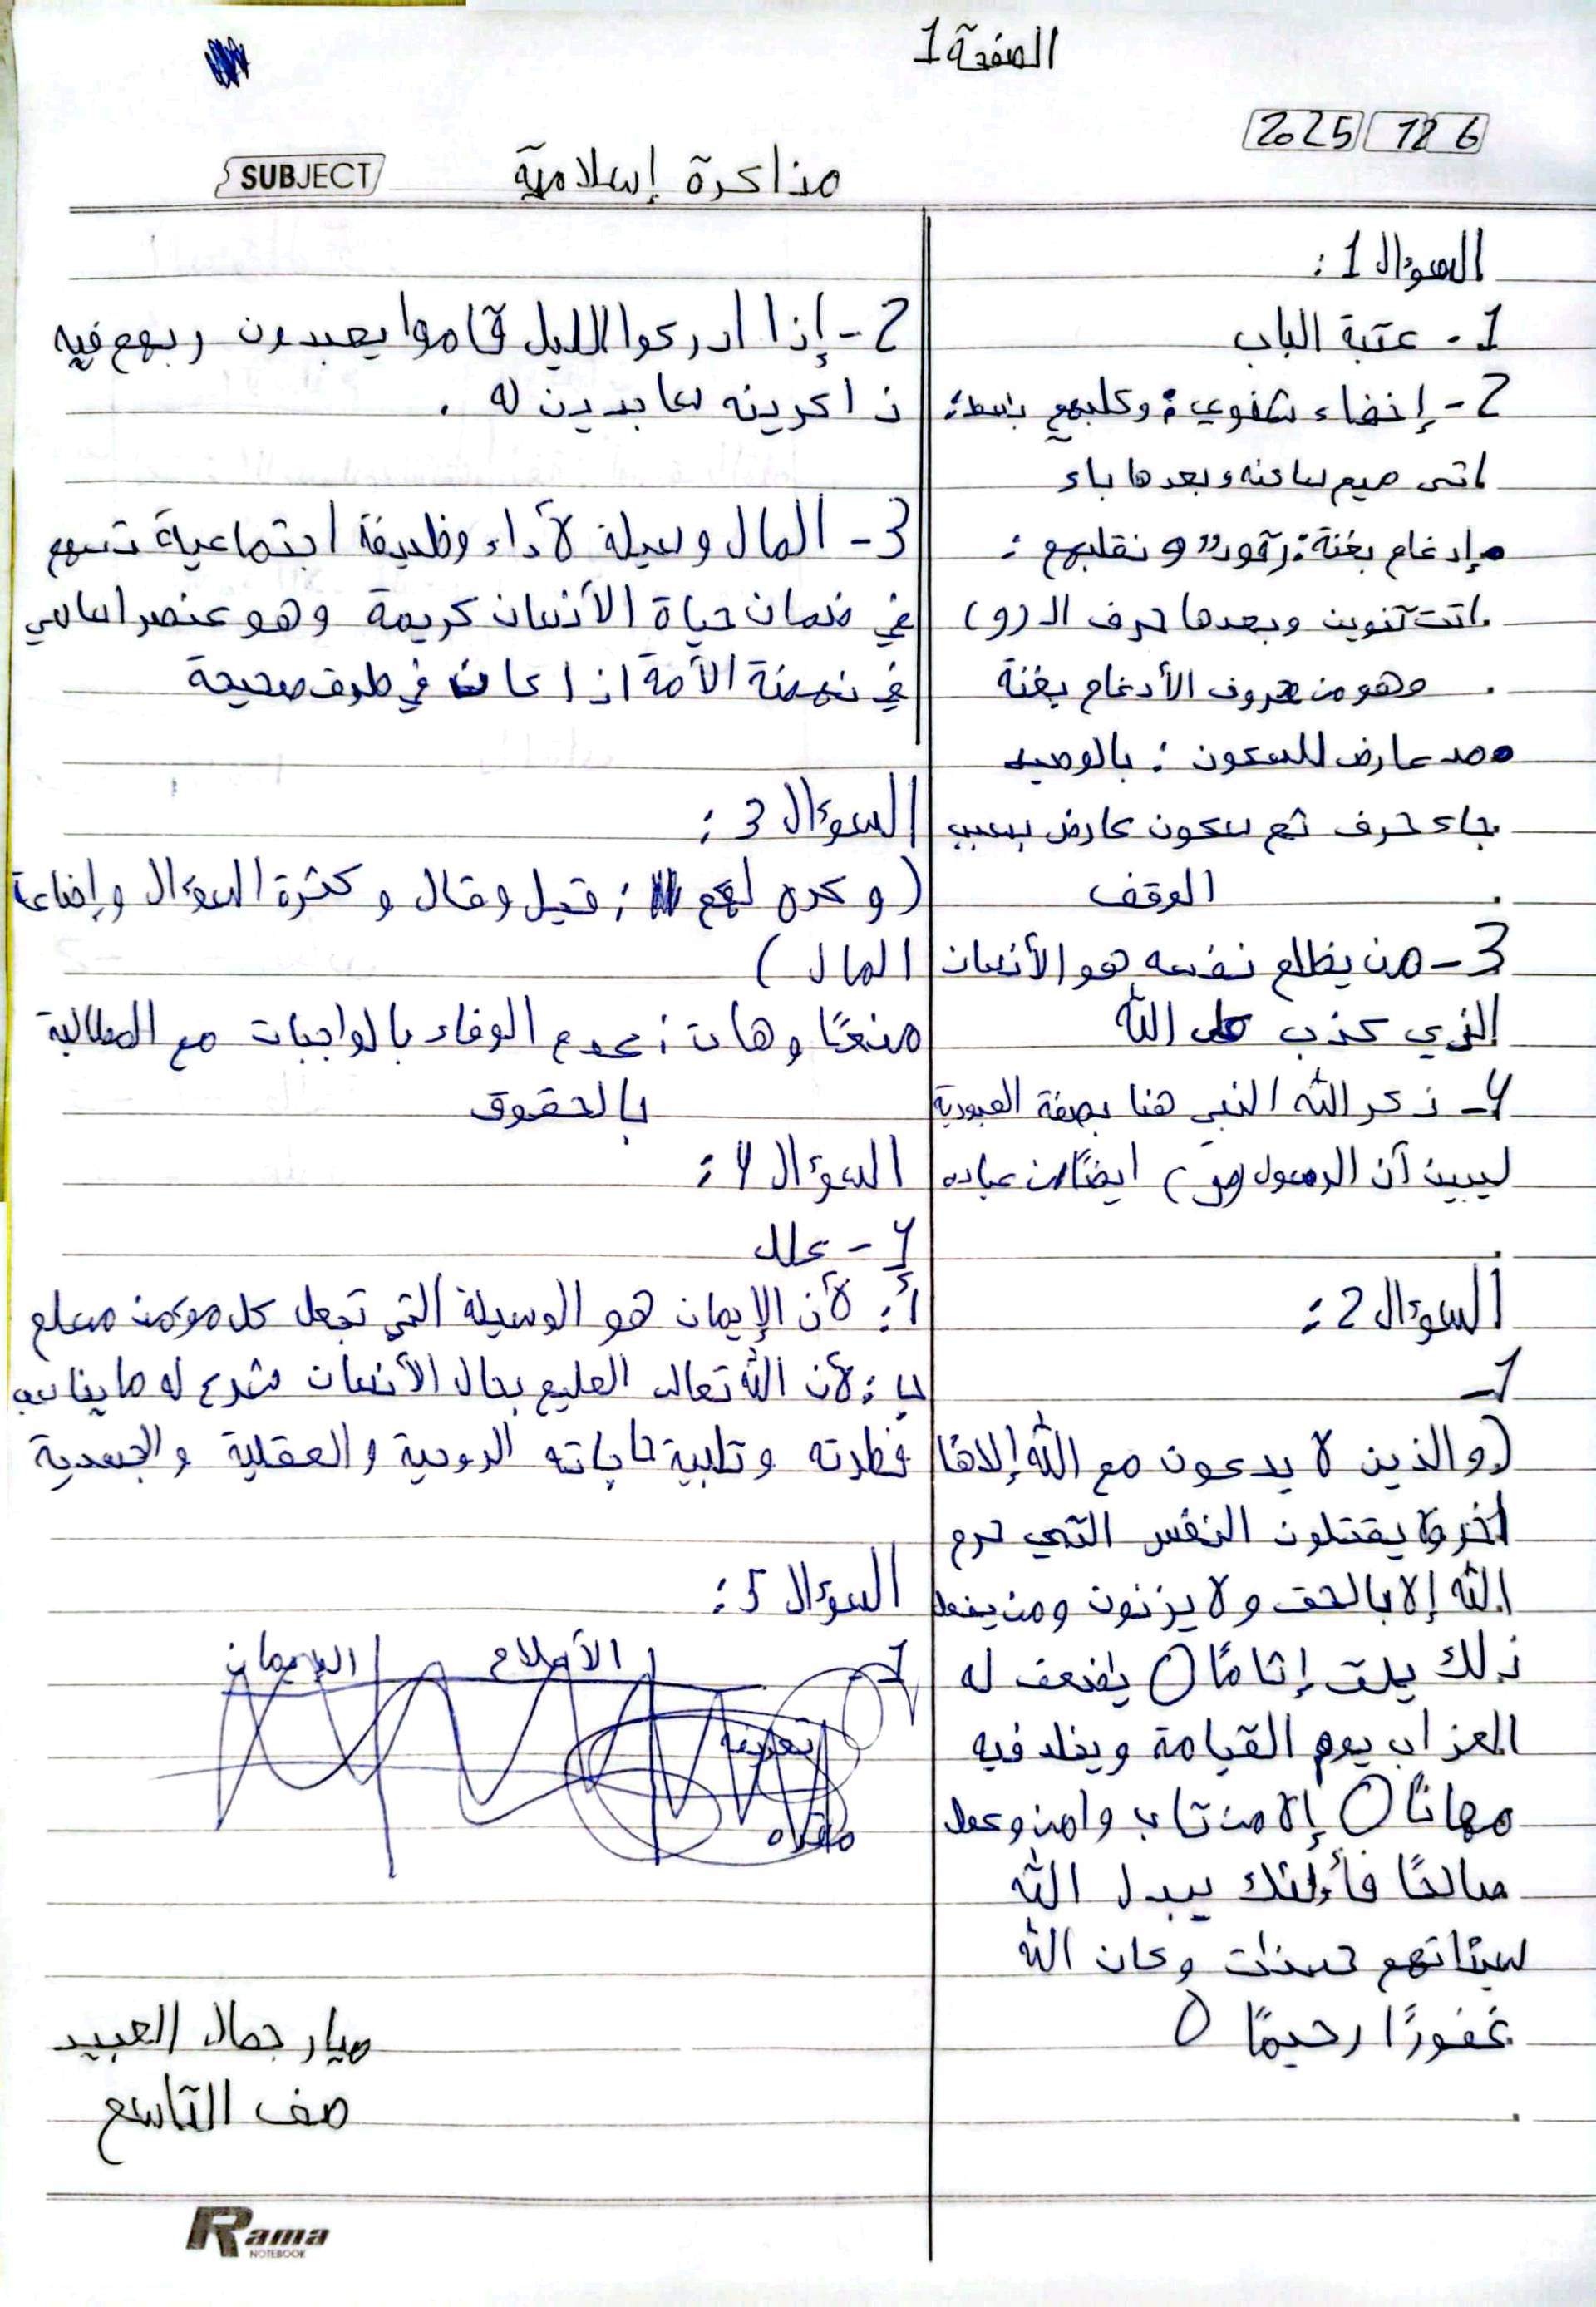 الصفحة 1
2025 12 6
SUBJECT
مذاكرة إسلامية
السؤال 1 :
1 - عتبة الباب
2 - إخفاء شفوي : وكلبهم باسط :
اتى ميم ساكنه وبعدها باء
إدغام بغنة : رقود" و نقلبهم :
اتت تنوين وبعدها حرف الـ (و)
وهو من حروف الأدغام بغنة
مد عارض للسكون : بالوصيد
جاء حرف ثم سكون عارض بسبب
الوقف
3 - من يظلم نفسه هو الأنسان
الذي كذب على الله
4 - ذكر الله النبي هنا بصفة العبودية
ليبين أن الرسول (ص) ايضًا من عباده
السؤال 2 :
1 -
(والذين لا يدعون مع الله إلاهًا
اخر ولا يقتلون النفس التي حرم
الله إلا بالحق ولا يزنون ومن يفعل
ذلك يلق إثامًا ○ يضعف له
العذاب يوم القيامة ويخلد فيه
مهانًا ○ إلا من تاب وامن وعمل
صالحًا فأولئك يبدل الله
سيئاتهم حسنات وكان الله
غفورًا رحيمًا ○
2 - إذا ادركوا الليل قاموا يعبدون ربهم فيه
ذاكرينه ساجدين له .
3 - المال وسيلة لأداء وظيفة اجتماعية تسهم
في ضمان حياة الأنسان كريمة وهو عنصر اساسي
في نهضة الأمة اذا كان في طرق صحيحة
السؤال 3 :
(و كره لكم : قيل وقال و كثرة السؤال وإضاعة
المال )
منعًا وهات : عدم الوفاء بالواجبات مع المطالبة
بالحقوق
السؤال 4 :
1 - علل
أ : لأن الإيمان هو الوسيلة التي تجعل كل مؤمن مسلم
ب : لأن الله تعالى العليم بحال الأنسان شرع له ما يناسب
فطرته وتلبية حاجاته الروحية والعقلية والجسدية
السؤال 5 :
1 -
الأسلام
الإيمان
تعريفه
ميار جمال العبيد
صف التاسع
Rama
NOTEBOOK